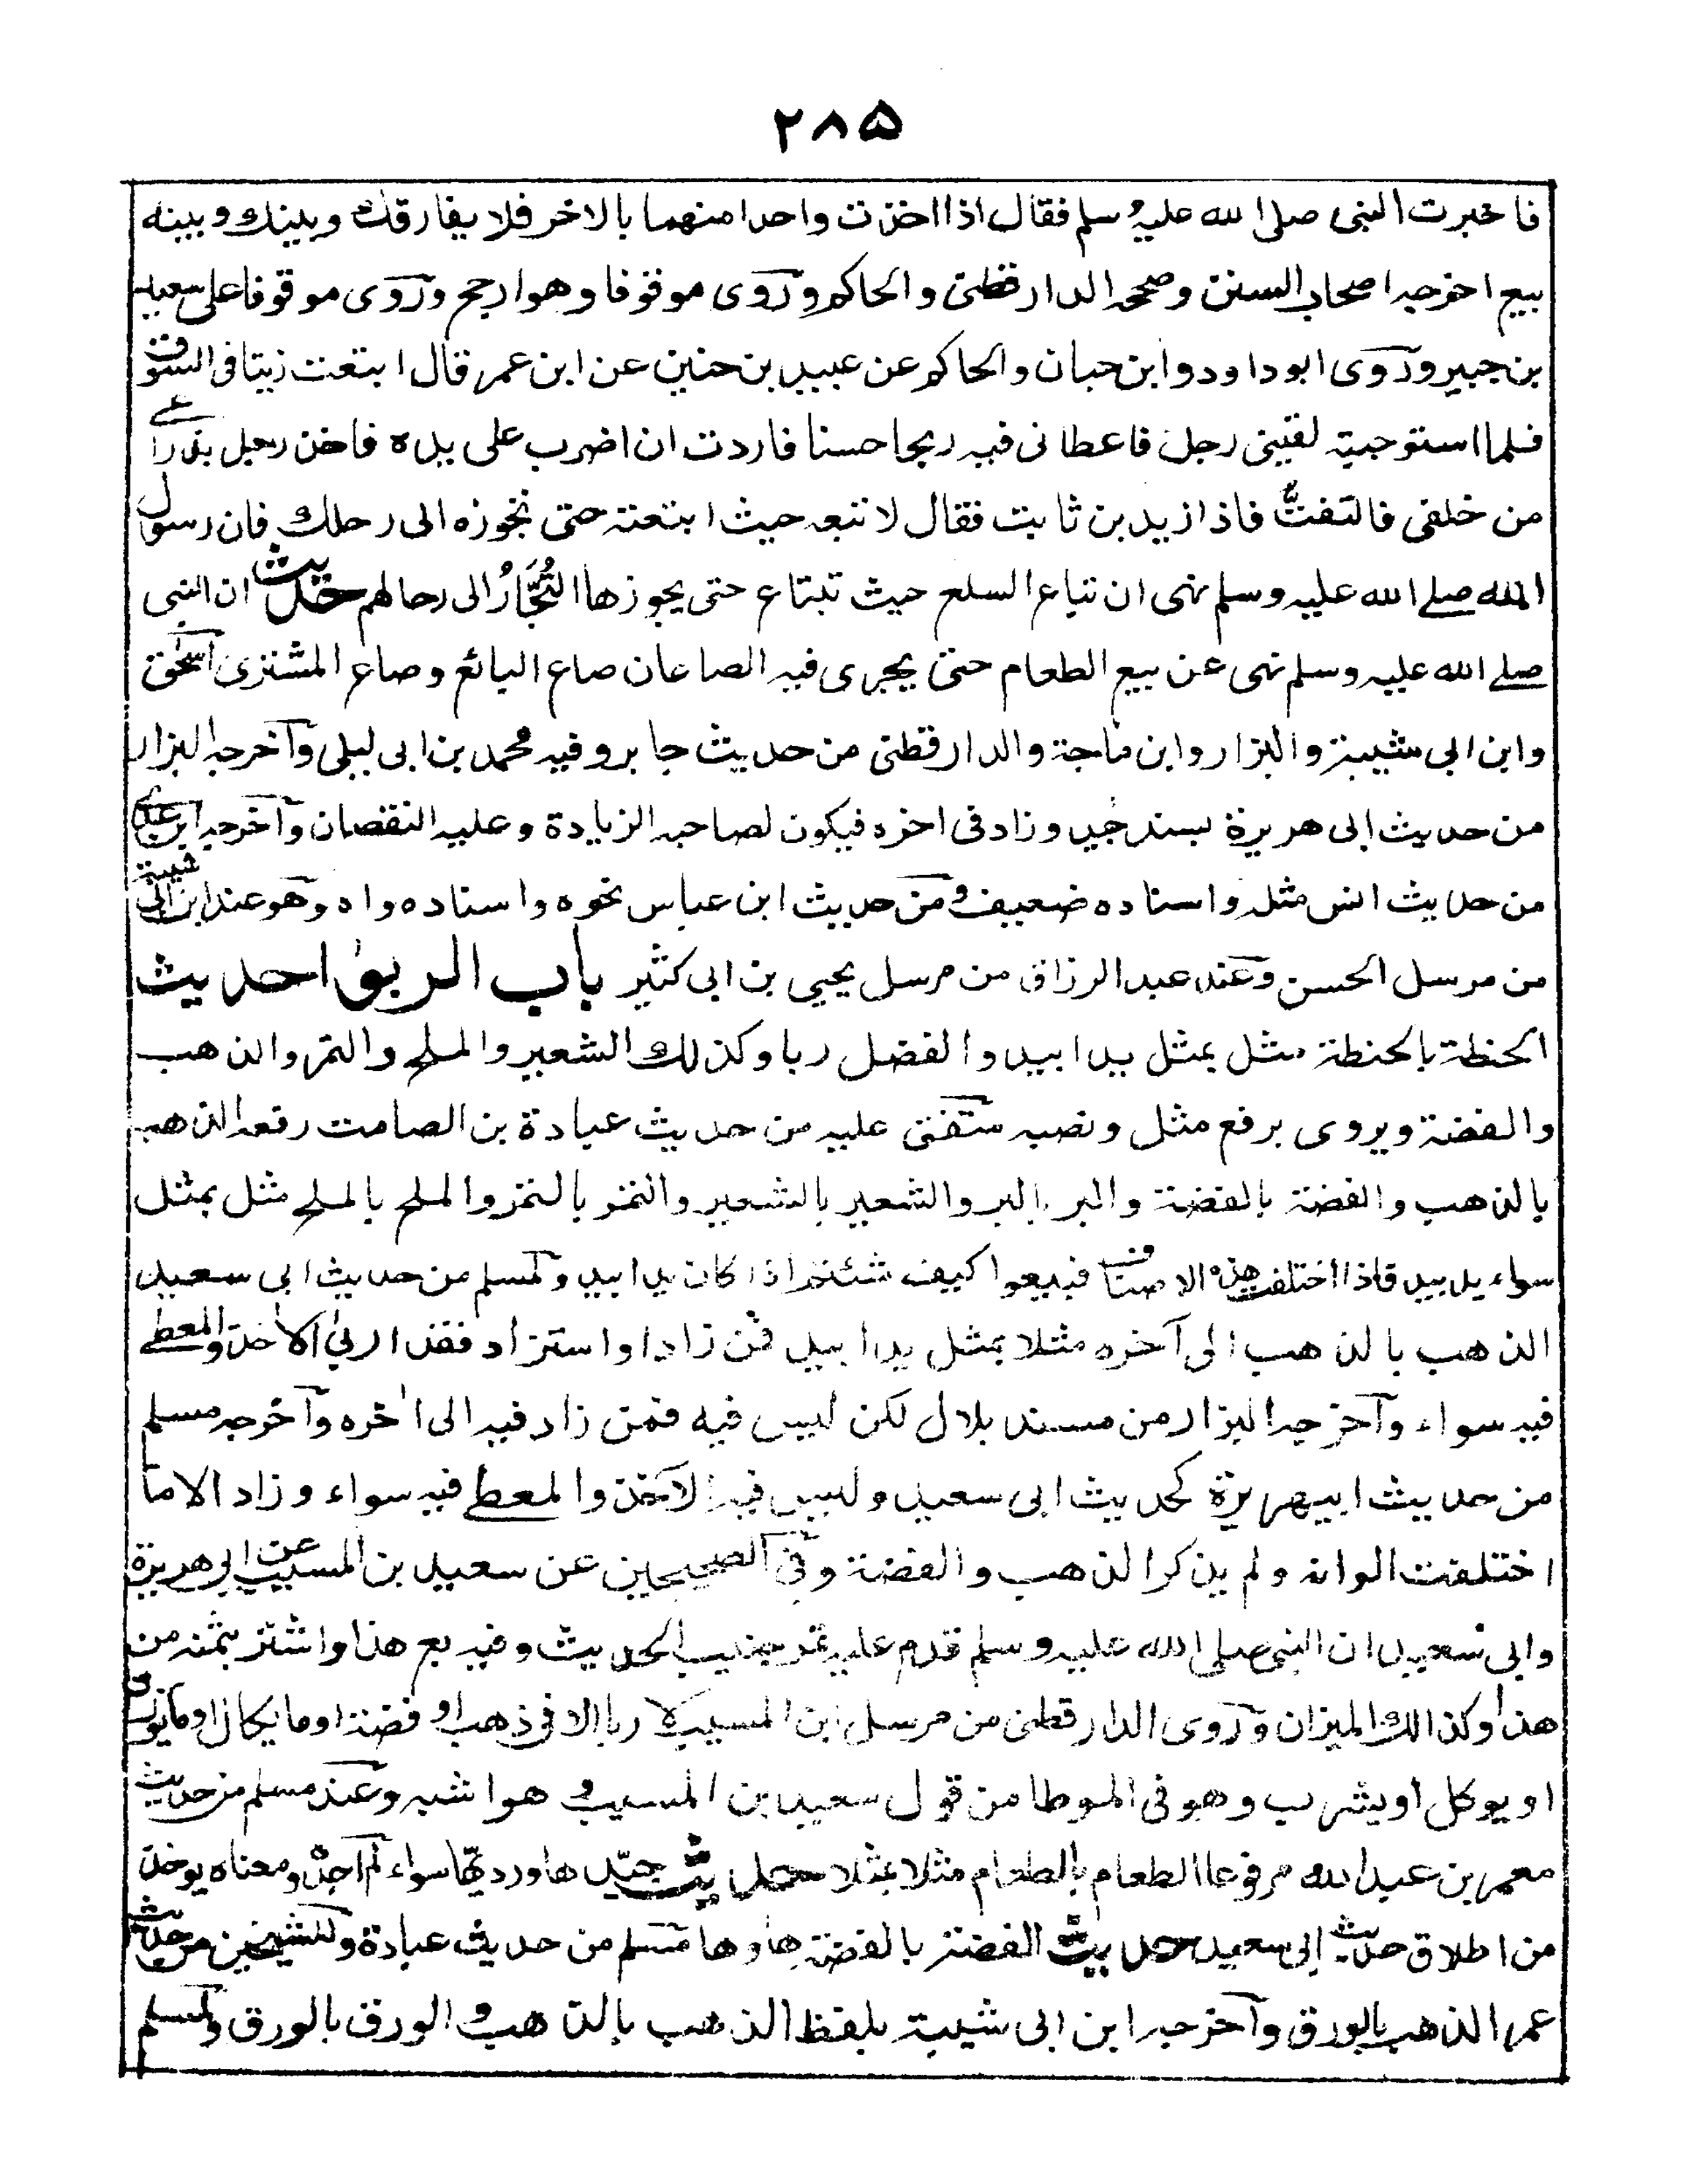 ۲۸۵
فاخبرت النبی صلی الله علیه وسلم فقال اذا اخذت واحدا منهما بالاخر فلا یفارقك وبینك وبینه
بیع اخرجه اصحاب السنن وصححه الدارقطنی والحاکم وروی موقوفا وهو ارجح وروی موقوفا علی سعید
بن جبیر وروی ابوداود وابن حبان والحاکم عن عبید بن حنین عن ابن عمر قال ابتعت زیتا فی السوق
فلما استوجبته لقینی رجل فاعطانی فیه ربحا حسنا فاردت ان اضرب علی یده فاخذ رجل بذراعی
من خلفی فالتفتُّ فاذا زید بن ثابت فقال لا تبعه حیث ابتعته حتی تحوزه الی رحلك فان رسول
الله صلے الله علیه وسلم نهی ان تباع السلع حیث تبتاع حتی یحوزها التُّجَّارُ الی رحالهم حدیث ان النبی
صلے الله علیه وسلم نهی عن بیع الطعام حتی یجری فیه الصاعان صاع البائع وصاع المشتری اسحٰق
وابن ابی شیبة والبزار وابن ماجة والدارقطنی من حدیث جابر وفیه محمد بن ابی لیلی وآخرجه البزار
من حدیث ابی هریرة بسند جید وزاد فی اخره فیکون لصاحبه الزیادة وعلیه النقصان وآخرجه ابن عدی
من حدیث انس مثله واسناده ضعیف ومن حدیث ابن عباس نحوه واسناده واه وهو عند ابن ابی شیبة
من مرسل الحسن وعند عبد الرزاق من مرسل یحیی بن ابی کثیر باب الربوٰا حدیث
الحنطة بالحنطة مثل بمثل یدا بید والفضل ربا وکذلك الشعیر والملح والتمر والذهب
والفضة ویروی برفع مثل ونصبه متفق علیه من حدیث عبادة بن الصامت رفعه الذهب
بالذهب والفضة بالفضة والبر بالبر والشعیر بالشعیر والتمر بالتمر والملح بالملح مثل بمثل
سواء ید بید فاذا اختلفت هذه الاصناف فبیعوا کیف شئتم اذا کان یدا بید ولمسلم من حدیث ابی سعید
الذهب بالذهب الی آخره مثلا بمثل یدا بید فمن زاد او استزاد فقد اربی الآخذ والمعطے
فیه سواء وآخرجه البزار من مسند بلال لکن لیس فیه فمن زاد فیه الی اٰخره وآخرجه مسلم
من حدیث ابیهریرة کحدیث ابی سعید ولیس فیه الآخذ والمعطے فیه سواء وزاد الا ما
اختلفت الوانه ولم یذکر الذهب والفضة وفی الصحیحین عن سعید بن المسیب عن ابی هریرة
وابی سعید ان النبی صلی الله علیه وسلم قدم علیه تمر جنیب الحدیث وفیه بع هذا واشتر بثمنه من
هذا وکذالك المیزان وروی الدارقطنی من مرسل ابن المسیب لا ربا الا فی ذهب او فضة او ما یکال او ما یوزن
او یوکل او یشرب وهو فی الموطا من قول سعید بن المسیب وهو اشبه وعند مسلم من حدیث
معمر بن عبد الله مرفوعا الطعام بالطعام مثلا بمثلا حدیث جیّدها وردیّها سواء لم اجده ومعناه یوخذ
من اطلاق حدیث ابی سعید حدیث الفضة بالفضة هاوها مسلم من حدیث عبادة وللشیخین من حدیث
عمر الذهب بالورق وآخرجه ابن ابی شیبة بلفظ الذهب بالذهب والورق بالورق ولمسلم